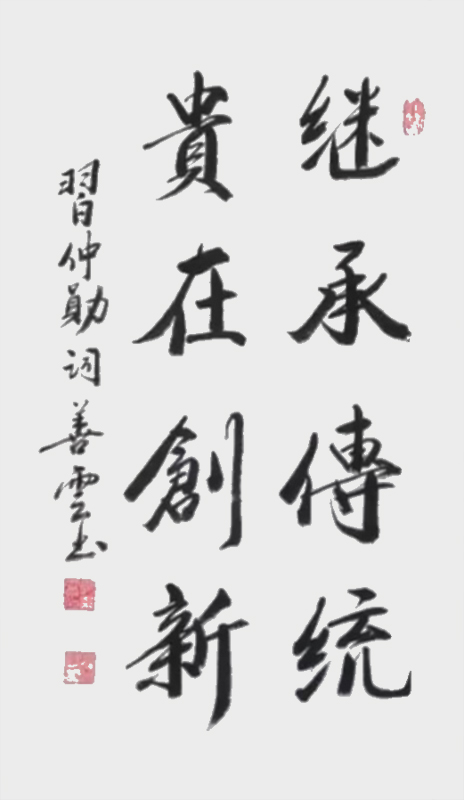 继承傳统
貴在創新
習仲勛詞善雲书